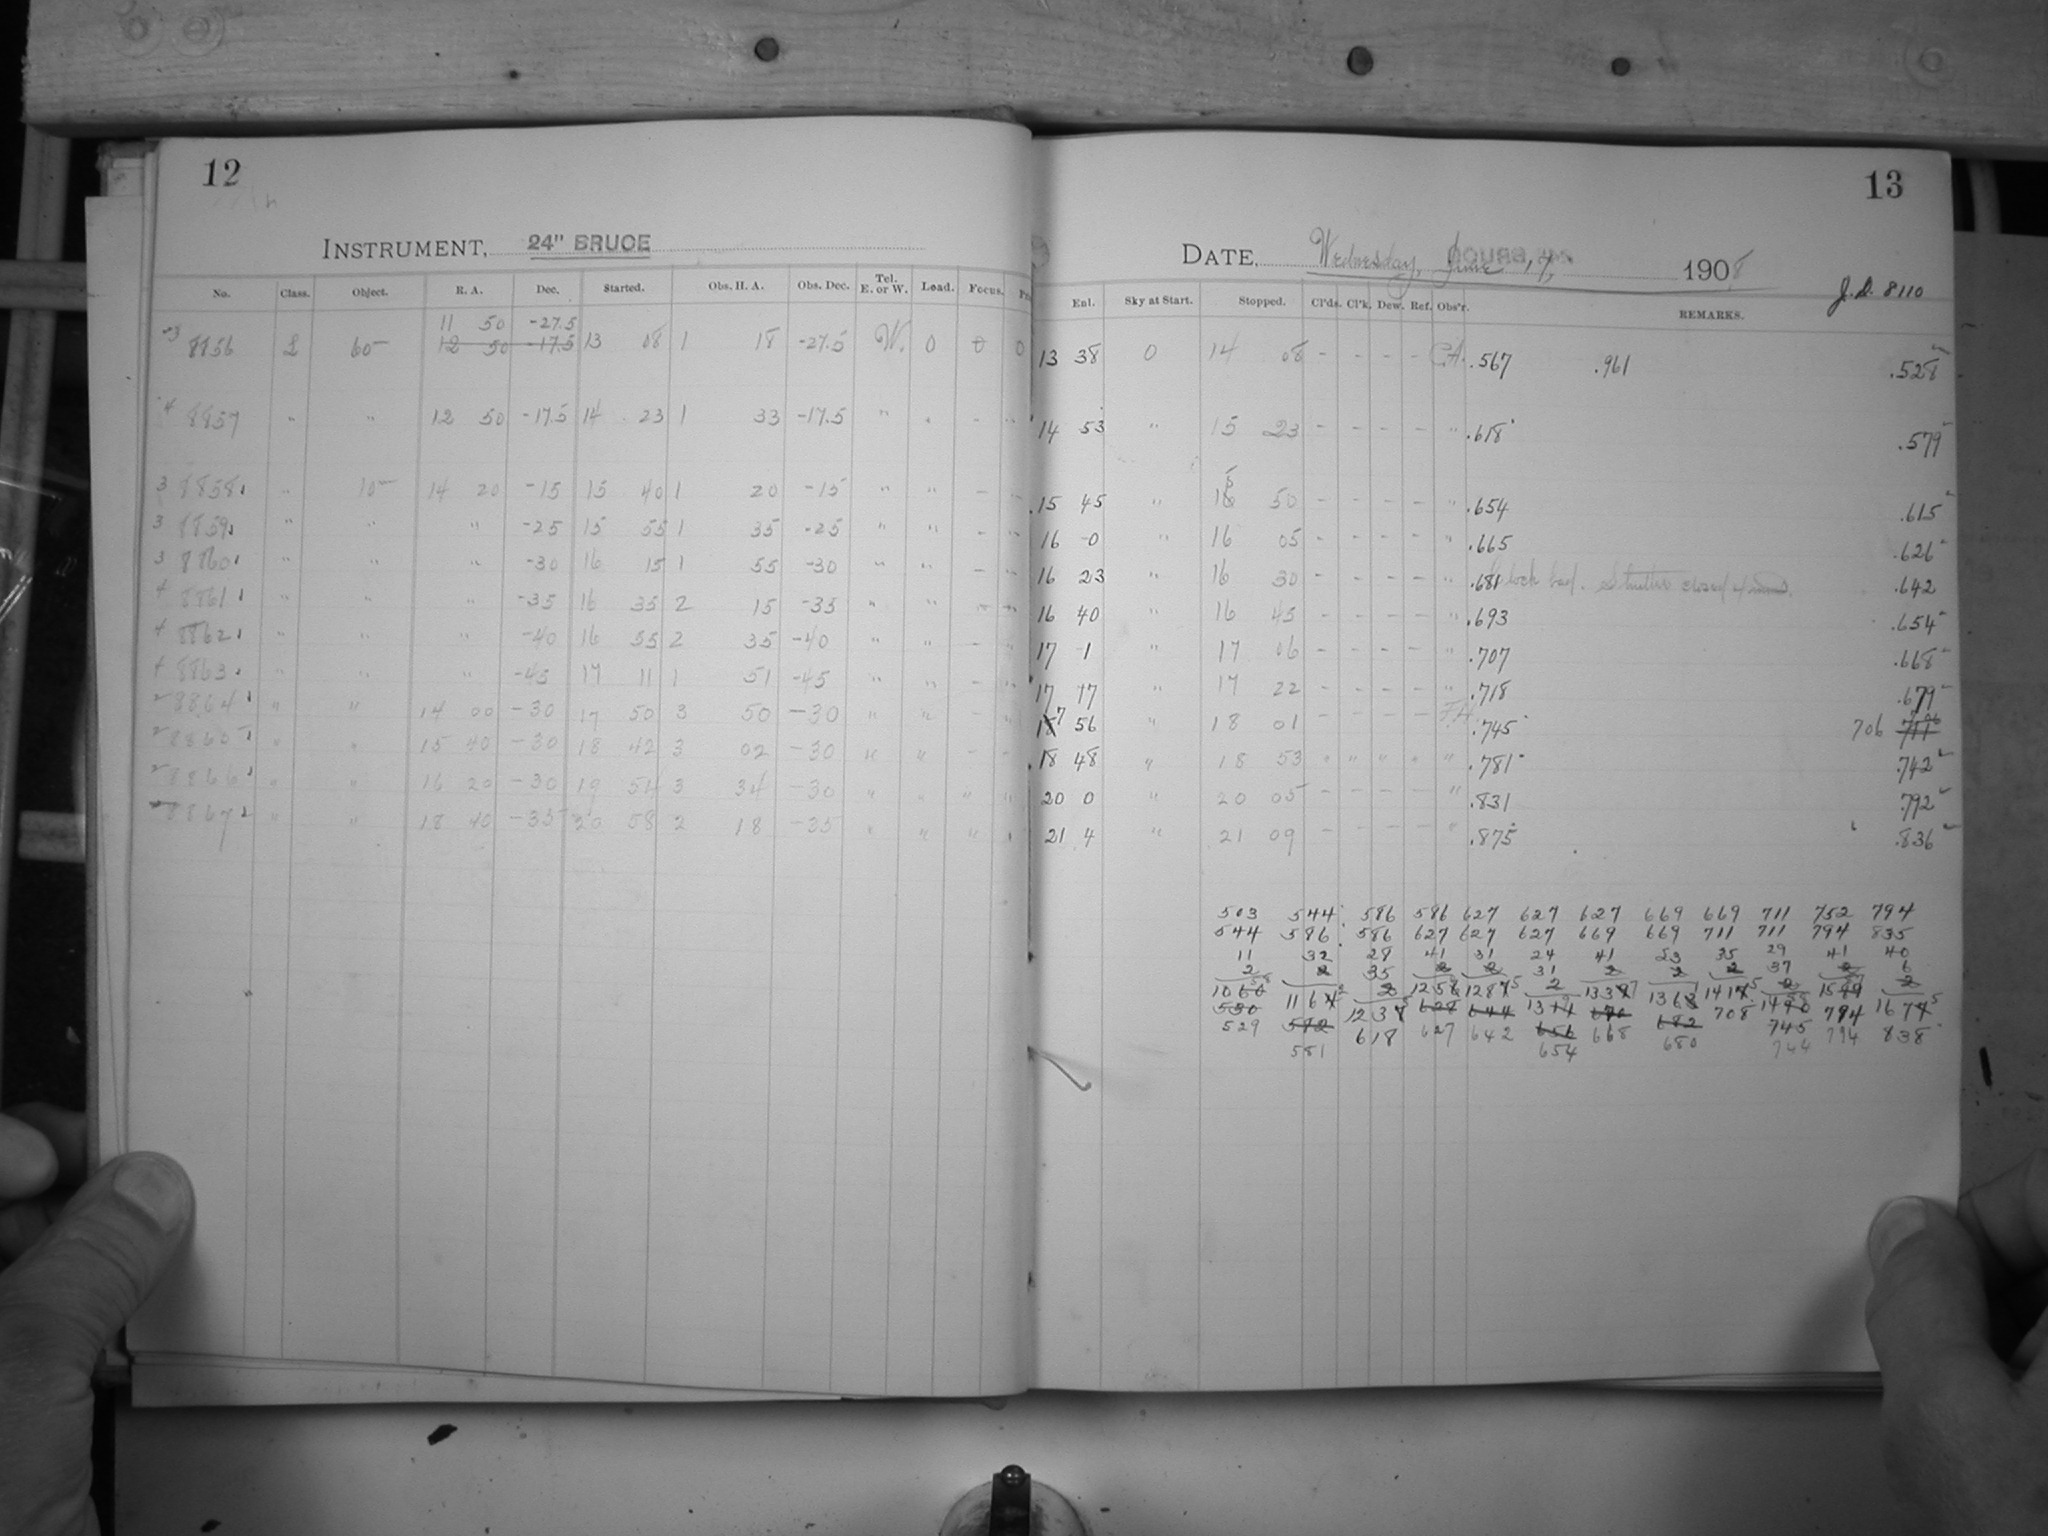 12
INSTRUMENT, 24" BRUCE
No. Class. Object. R. A. Dec. Started. Obs. H. A. Obs. Dec. Tel. E. or W. Load. Focus.
11 50 -27.5
8856 L 60 12 50 -17.5 13 08 1 18 -27.5 W. 0 0 0
8857 " " 12 50 -17.5 14 23 1 33 -17.5 "
3 8858 " 10 14 20 -15 15 40 1 20 -15 " " -
3 8859 " " " -25 15 55 1 35 -25 " " -
3 8860 " " " -30 16 15 1 55 -30 " " -
4 8861 " " " -35 16 35 2 15 -35 " " -
4 8862 " " " -40 16 55 2 35 -40 " " -
4 8863 " " " -45 17 11 1 51 -45 " " -
2 8864 " " 14 00 -30 17 50 3 50 -30 " " -
2 8865 " " 15 40 -30 18 42 3 02 -30 " " -
2 8866 " " 16 20 -30 19 54 3 34 -30 " " "
8867 " " 18 40 -35 20 58 2 18 -35 " " "
13
DATE, Wednesday, June 17, 1908
J.D. 8110
Enl. Sky at Start. Stopped. Cl'ds. Cl'k. Dew. Ref. Obs'r. REMARKS.
13 38 0 14 08 - - - - .567 .961 .528
14 53 " 15 23 - - - - " .618 .579
15 45 " 15 50 - - - - " .654 .615
16 0 " 16 05 - - - - " .665 .626
16 23 " 16 30 - - - - " .681 Clock bad. Shutter closed 4 .642
16 40 " 16 45 - - - - " .693 .654
17 1 " 17 06 - - - - " .707 .668
17 17 " 17 22 - - - - " .718 .679
17 56 " 18 01 - - - - .745 706 711
18 48 " 18 53 " " " " " .781 .742
20 0 " 20 05 - - - - " .831 .792
21 4 " 21 09 - - - - " .875 .836
503 544 586 586 627 627 627 669 669 711 752 794
544 586 586 627 627 627 669 669 711 711 794 835
11 32 28 41 31 24 41 23 35 29 41 40
2 2 35 2 2 31 2 2 2 37 2 6
529 618 627 642 668 708 745 794 838
581 654 680 744